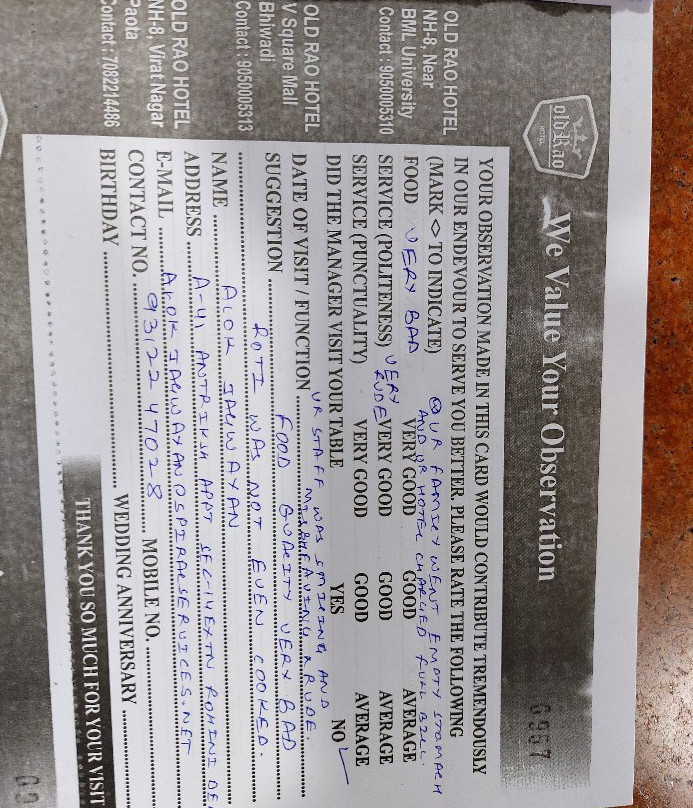 old Rao
HOTEL
We Value Your Observation
0957
OLD RAO HOTEL
NH-8, Near
BML University
Contact : 9050005310
OLD RAO HOTEL
V Square Mall
Bhiwadi
Contact : 9050005313
OLD RAO HOTEL
NH-8, Virat Nagar
Paota
Contact : 7082214486
YOUR OBSERVATION MADE IN THIS CARD WOULD CONTRIBUTE TREMENDOUSLY
IN OUR ENDEVOUR TO SERVE YOU BETTER. PLEASE RATE THE FOLLOWING
(MARK <> TO INDICATE) UR FAMILY WENT EMPTY STOMACH
AND UR HOTEL CHARGED FULL BILL
FOOD VERY BAD VERY GOOD GOOD AVERAGE
SERVICE (POLITENESS) VERY RUDE VERY GOOD GOOD AVERAGE
SERVICE (PUNCTUALITY) VERY GOOD GOOD AVERAGE
DID THE MANAGER VISIT YOUR TABLE YES NO
UR STAFF WAS SMILING AND
DATE OF VISIT / FUNCTION MISBEHAVING & RUDE.
SUGGESTION FOOD QUALITY VERY BAD
ROTI WAS NOT EVEN COOKED.
NAME ALOK JAGWAYAN
ADDRESS A-41 ANTRIKSH APPT SEC-14 EXTN ROHINI
E-MAIL ALOK JAGWAYAN@SPIRALSERVICES.NET
CONTACT NO. 93122 47028 MOBILE NO.
BIRTHDAY WEDDING ANNIVERSARY
THANK YOU SO MUCH FOR YOUR VISIT